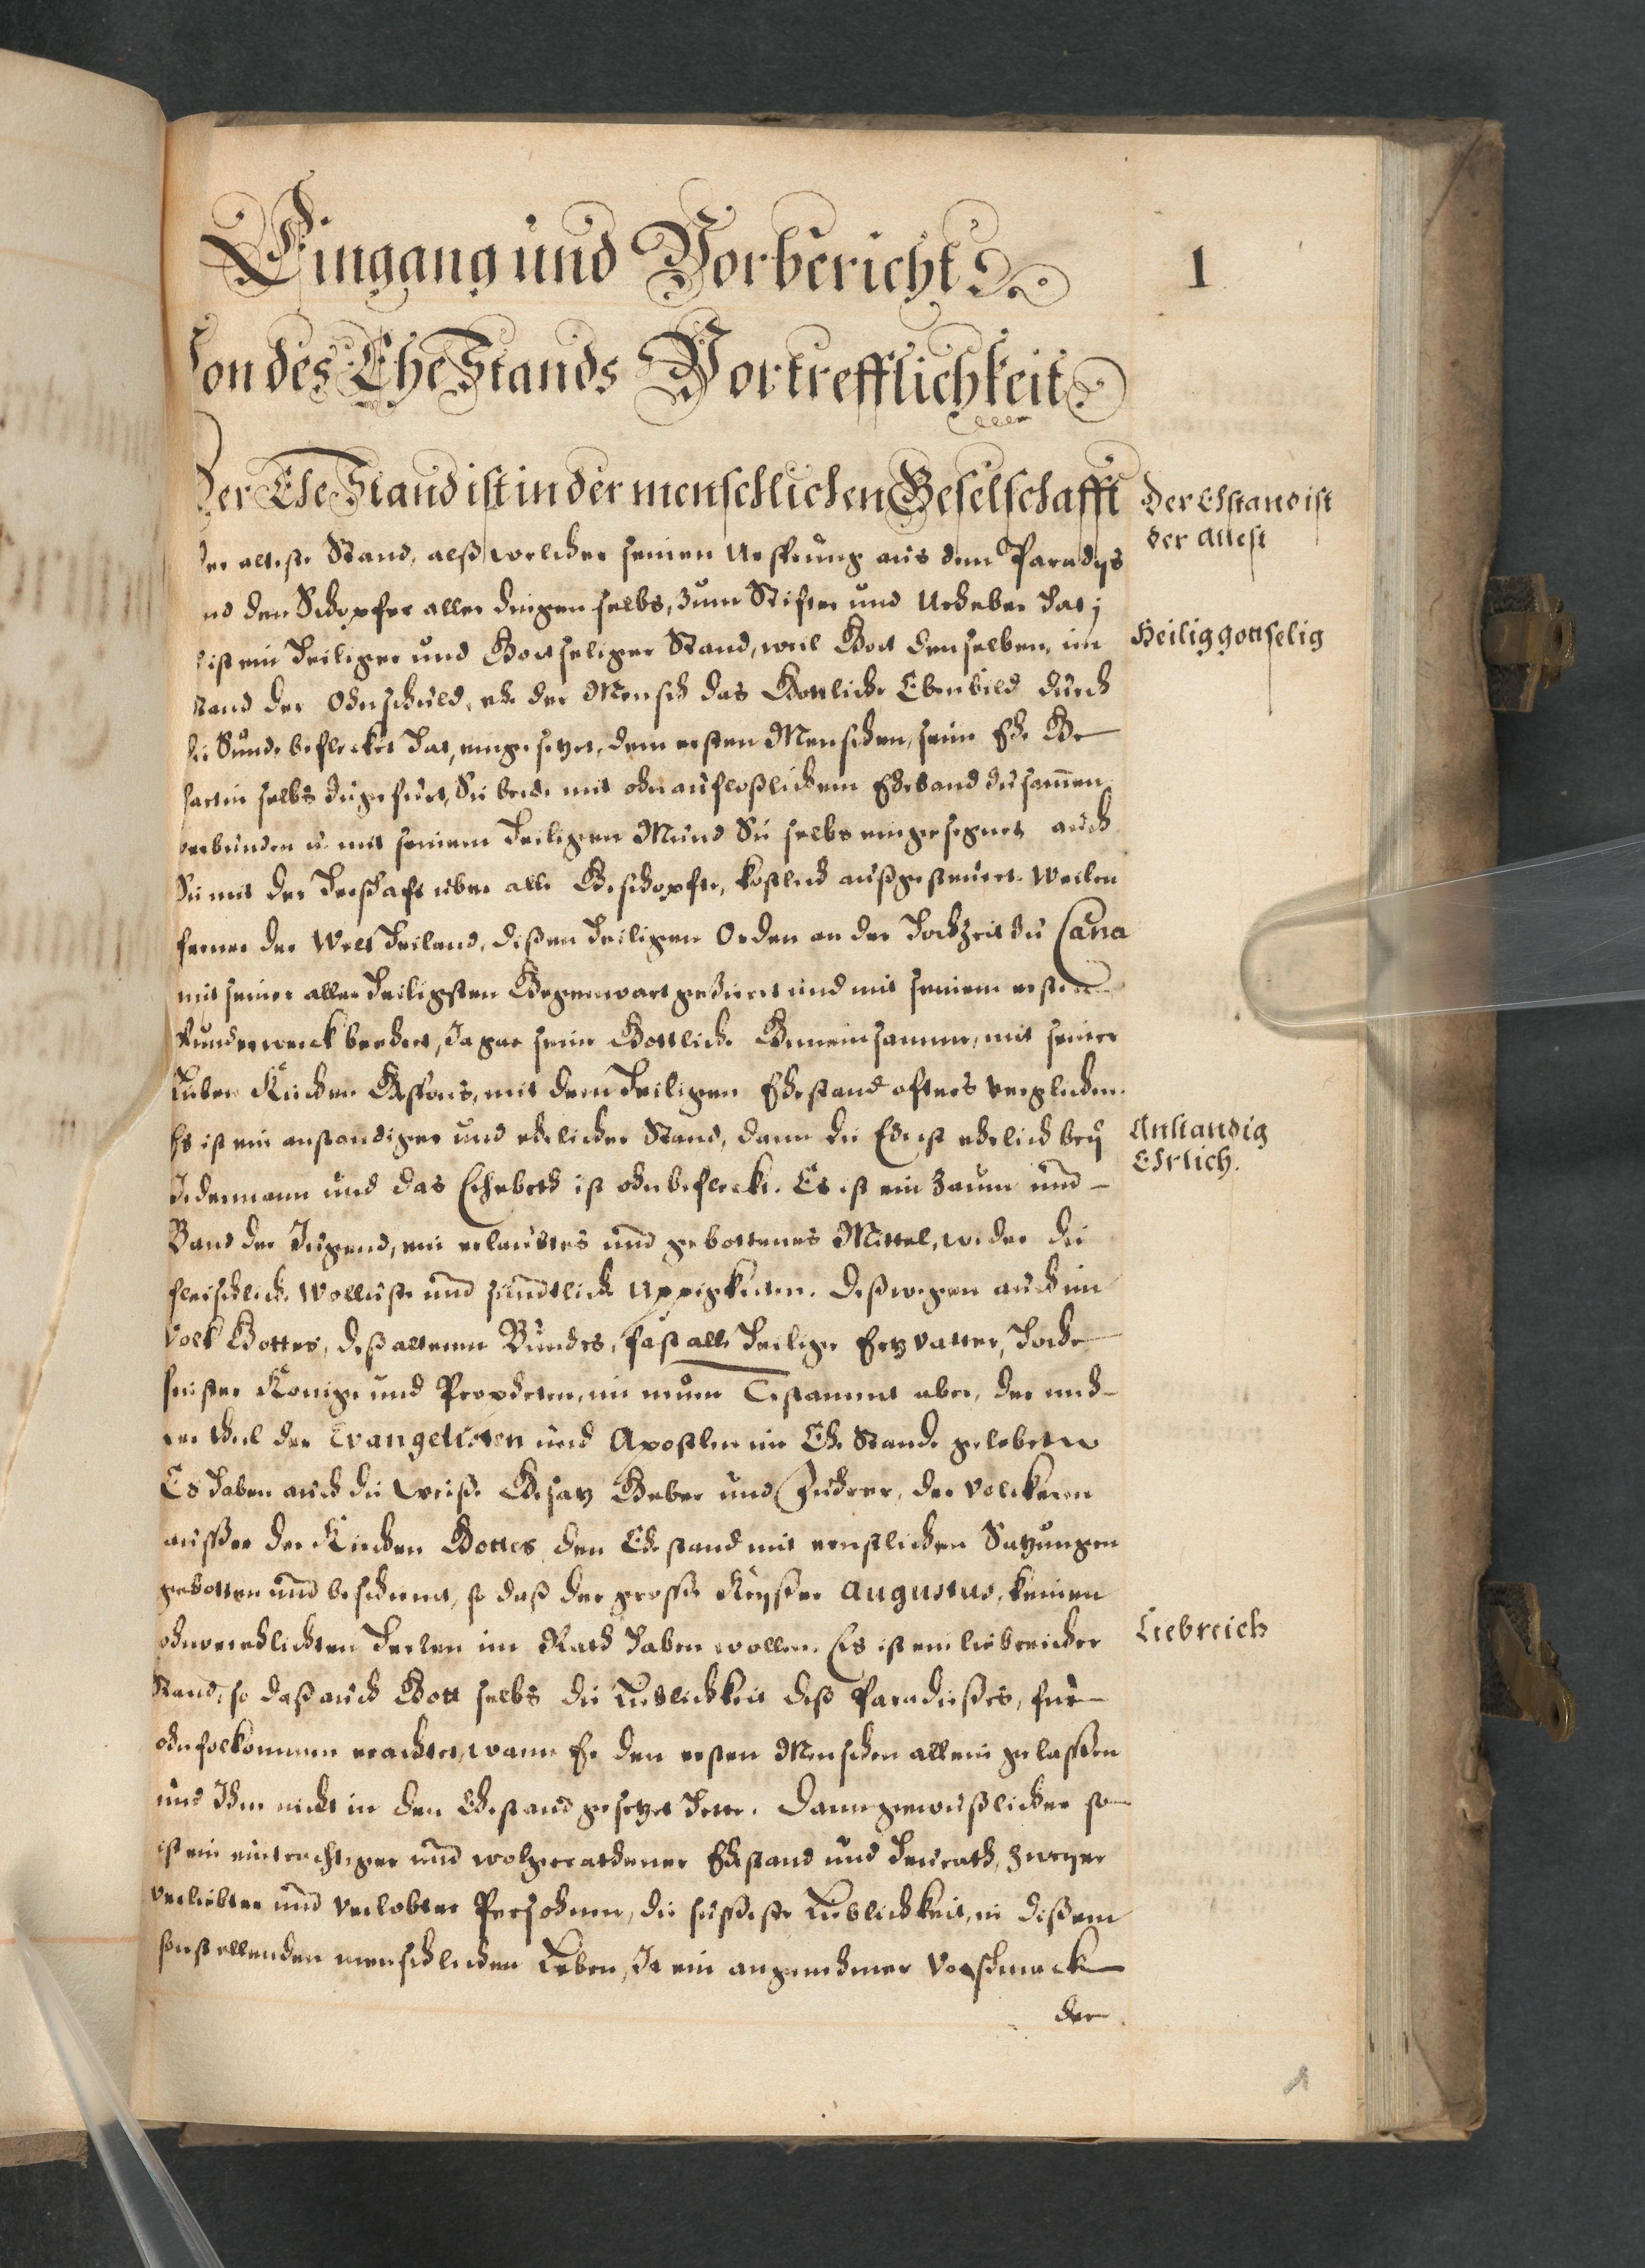 Eingang und Vorbericht
1
Von des EheStands Vortrefflichkeit
Der EheStand ist in der menschlichen Geselschafft
Der Ehstand ist
der Altest
der alteste Stand, alß welcher seinen Ursprung aus dem Paradys
und den Schopfer aller dingen selbs, zum Stifter und Urheber hat;
ist ein heiliger und Gottseliger Stand, weil Gott denselben, im
Heilig gottselig
stand der Ohnschuld, ehe der Mensch das Gottliche Ebenbild durch
die Sunde beflecket hat, eingesetzet, dem ersten Menschen, seine Ehe Ge
hartin selbs zugefürt, Sie beide mit ohnaufloßlichem Ehrband zusamen
verbunden u. mit seinem heiligen Mund Sie selbs eingesegnet auch
Sie mit der herschaft über alle Geschöpfte, kostlich außgesteuert. Weilen
ferner der Welt heiland, dißen heiligen Orden an der hochzeit zu Cana
mit seiner aller heiligsten Gegenwart gezieret und mit seinem ersten
Wunderwerck beehret, Ja gar seine Gottliche Gemeinsamme, mit seiner
Lieben Kirchen Gespons, mit dem heiligen Ehestand ofters verglichen.
Es ist ein anstandiger und ehrlicher Stand, dann die Ehe ist ehrlich bey
Anstandig
Ehrlich.
Jederman und das Ehebeth ist ohnbefleckt. Es ist ein Zaum und
Band der Jugend, ein erlaubtes und gebottenes Mittel, wider die
fleischliche Wollüste und sündtliche Uppigkeiten. Deßwegen auch im
Volk Gottes, deß altenn Bundes, fast alle heilige Ertzvatter, Hoche
priester Konige und Propheten, im neuen Testament aber, der meh-
rer theil der Evangelisten und Apostlen im Ehe Stande gelebet
Es haben auch die weiße Gesatz Geber und Fuhrer, der Volckeren
ausser der Kirchen Gottes, den Ehestand mit ernstlichen Satzungen
gebotten und beschirmet, so daß der grosse Keysser Augustus, keinen
ohnverehlichten herren im Rath haben wollen. Es ist ein liebreicher
Liebreich
Stand, so daß auch Gott selbs die Lieblichkeit deß Paradießes, für
ohnfolkommen erachtet, wann Er den ersten Menschen allein gelassen
und Ihm nicht in den Ehestand gesetzet hette. Dann gewußlichen so
ist ein eintrachtiger und wolgerathener Ehestand und Heurath, zweyer
verliebter und verlobter Persohnen, die süsseste Lieblichkeit, in dißem
sonst ellenden menschlichen Leben, Ja ein angenehmer Vorschmack
der
1